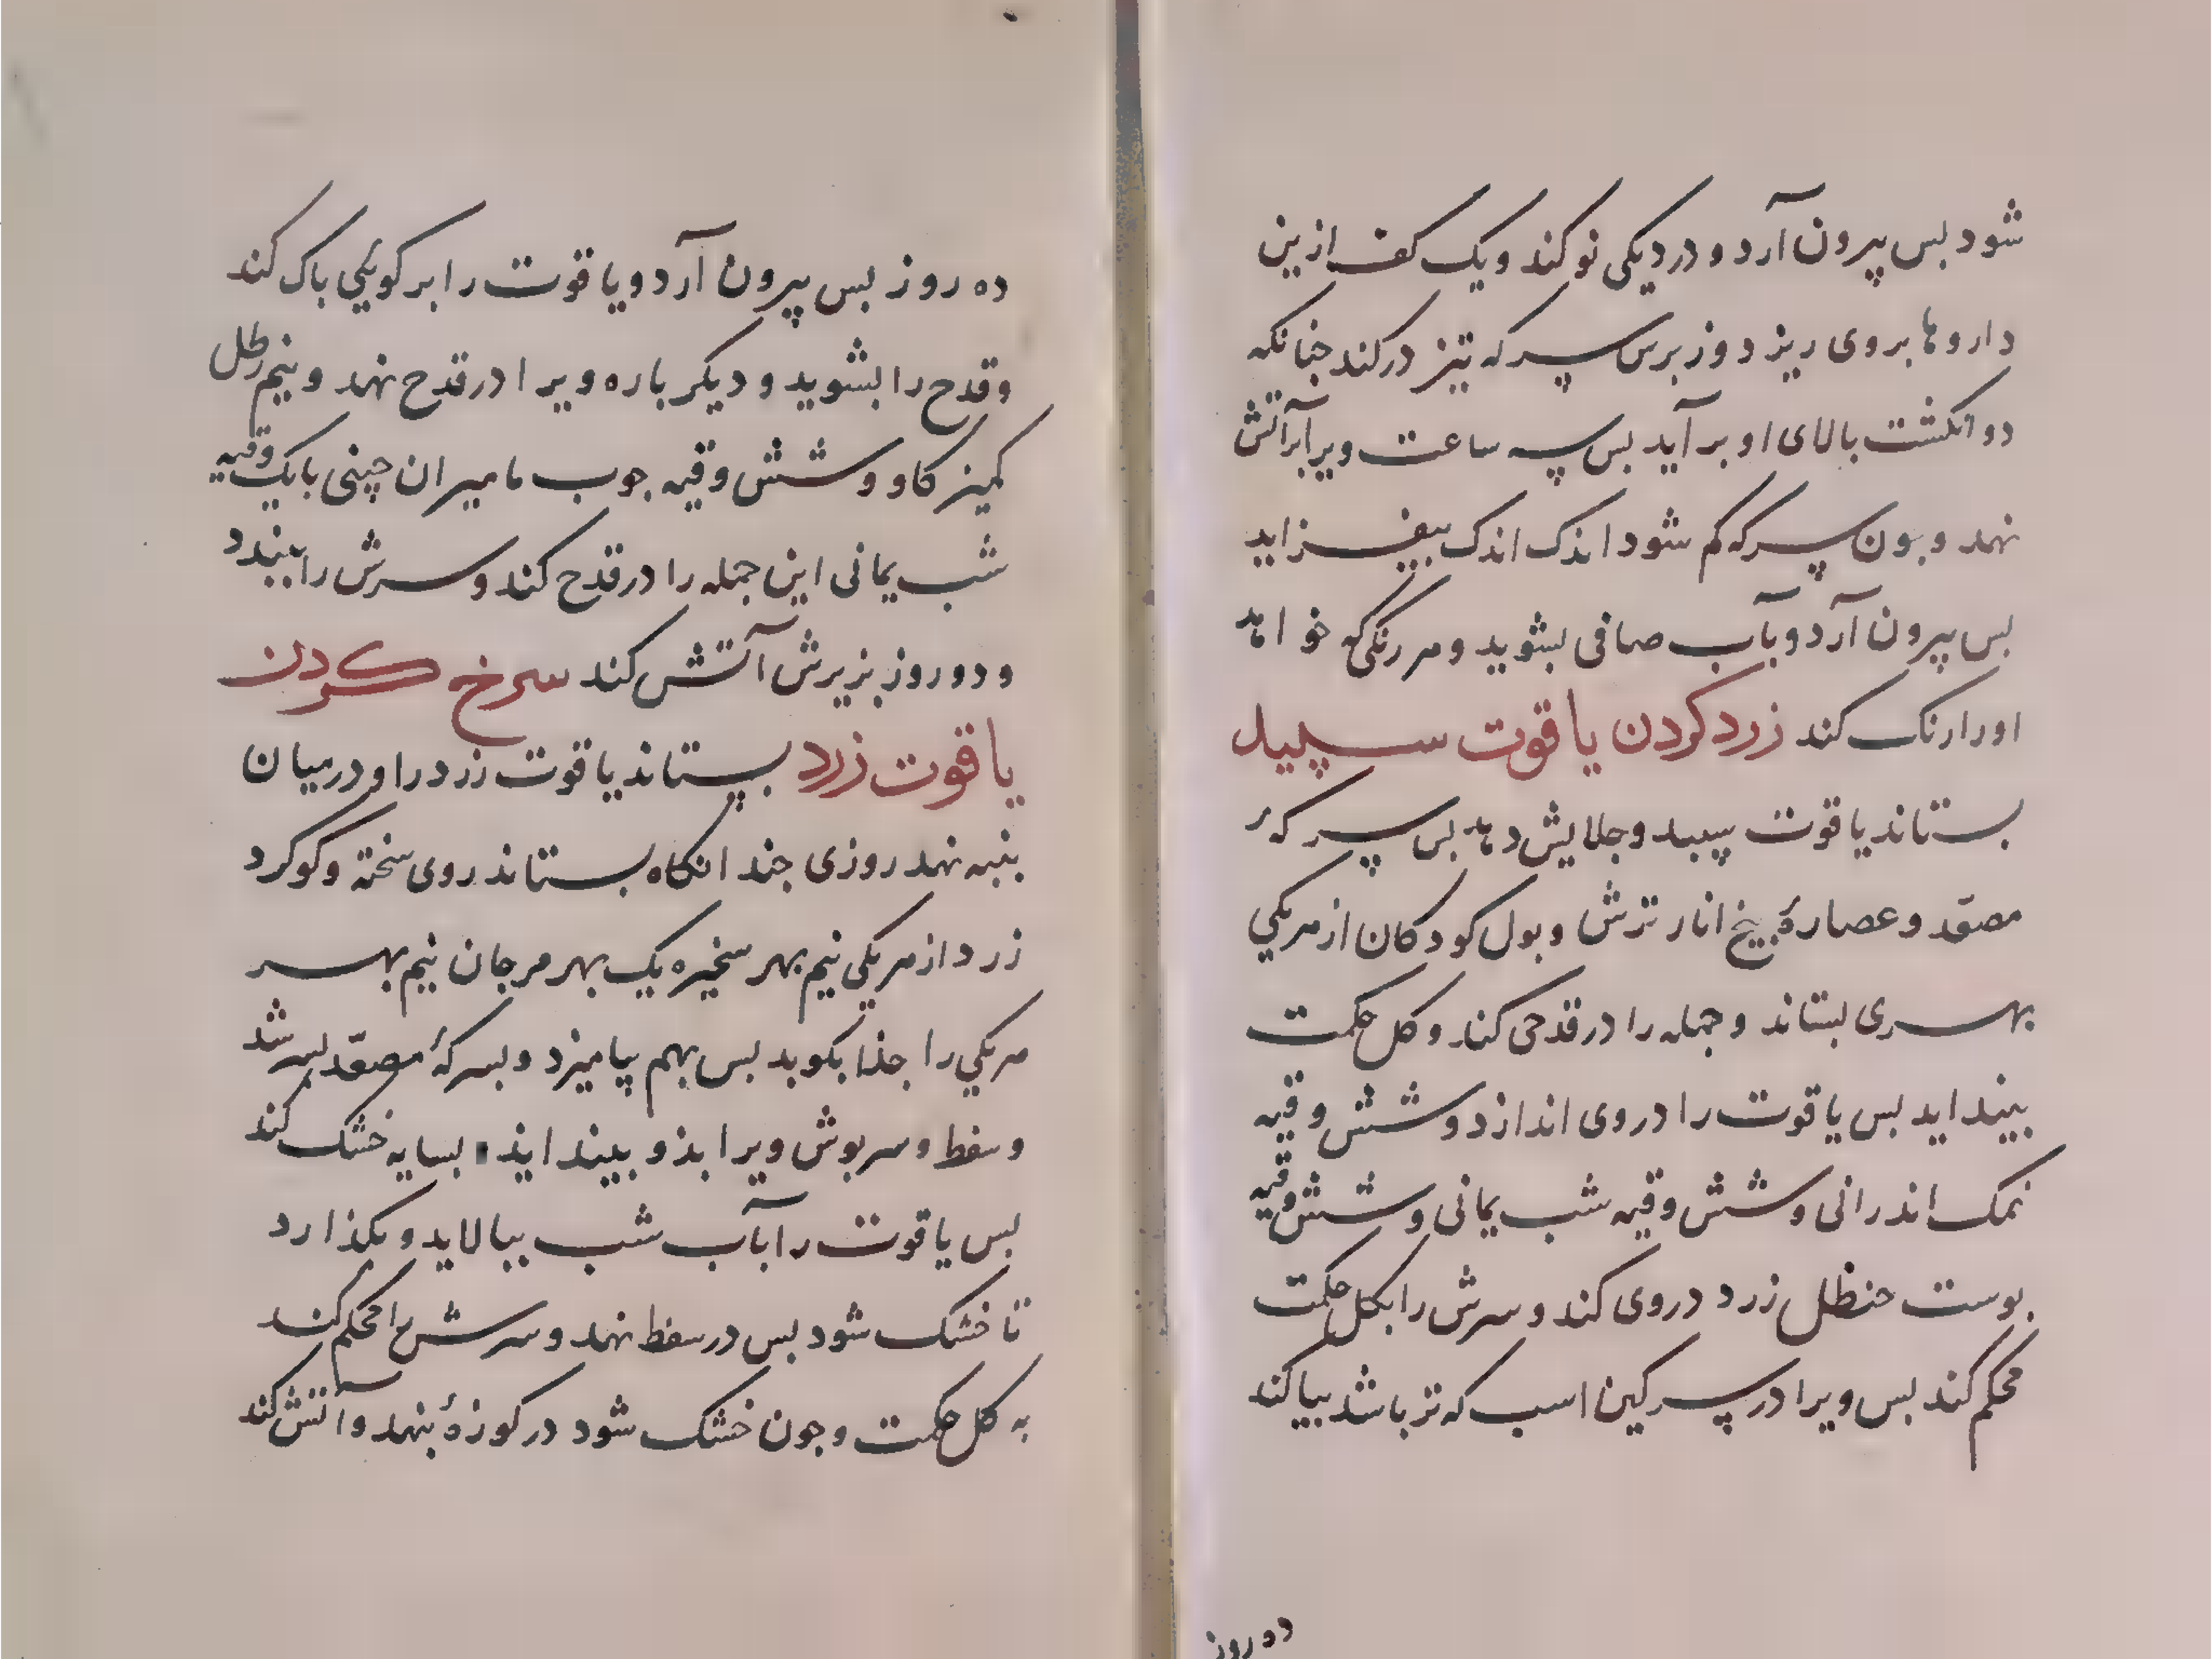 شود بس بیرون آرد و در دیکی نو کند و یک کف ازین
داروها بروی ریزد وز برس سرکه تیز درکند جنانکه
دو انکشت بالای او بر آید بس سه ساعت ویرا بر آتش
نهد و جون سرکه کم شود اندک اندک بیفزاید
بس بیرون آرد و بآب صافی بشوید و هر رنکی که خواهد
اورا رنک کند زرد کردن یاقوت سپید
بستاند یاقوت سپید و جلایش دهد بس سرکهٔ
مصعّد و عصارهٔ بیخ انار ترش و بول کودکان از هر یکی
بهری بستاند و جمله را در قدحی کند و کل حکمت
بینداید بس یاقوت را در وی اندازد و شش وقیه
نمک اندرانی و شش وقیه شب یمانی و شش وقیه
بوست حنظل زرد در وی کند و سرش را بکل حکمت
محکم کند بس ویرا در سرکین اسب که تر باشد بیاکند
ده روز
ده روز بس بیرون آرد و یاقوت را بر کویکی باک کند
و قدح را بشوید و دیکر باره ویرا در قدح نهد و نیم رطل
کمیز کاو و شش وقیه جوب مامیران چینی با یک وقیه
شب یمانی این جمله را در قدح کند و سرش را ببندد
و دو روز بزیرش آتش کند سرخ کردن
یاقوت زرد بستاند یاقوت زرد را و در میان
بنبه نهد روزی جند انکاه بستاند روی سخته و کوکرد
زرد از هر یکی نیم بهر سخیره یک بهر مرجان نیم بهر
هر یکی را جذا بکوبد بس بهم بیامیزد و بسرکهٔ مصعّد بسرشد
و سفط و سربوش ویرا بذو بینداید بسایه خشک کند
بس یاقوت را بآب شب ببالاید و بکذارد
تا خشک شود بس در سفط نهد و سرش را محکم کند
به کل حکمت و جون خشک شود در کوزهٔ بنهد و آتش کند